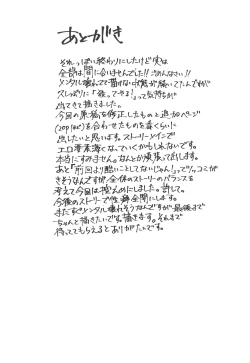 あとがき
それっぽい終わりにしたけど実は
全部は間に合いませんでした!! ごめんなさい!!
メンタル壊れてて描けない状態が続いてたんですが
久しぶりに「張ってやる!」って気持ちが
出てきて描きました。
今回の原稿を修正したものと追加ページ
(20pくらい)を合わせたものを春くらいに
出したいと思います。ストーリーメインで
エロ要素薄くなっていくかもしれないです。
本当にすみません。なんとか頑張って出します。
あと「前回より酷いことしてないじゃん!」ってツッコミが
きそうなんですが全体のストーリーのバランスを
考えて今回は控えめにしました。許して。
今後のストーリーで性癖全開にします。
まだまだメンタル壊れそうなんですが最後まで
ちゃんと描きたいので描きます。それまで
待っててもらえるとありがたいです。